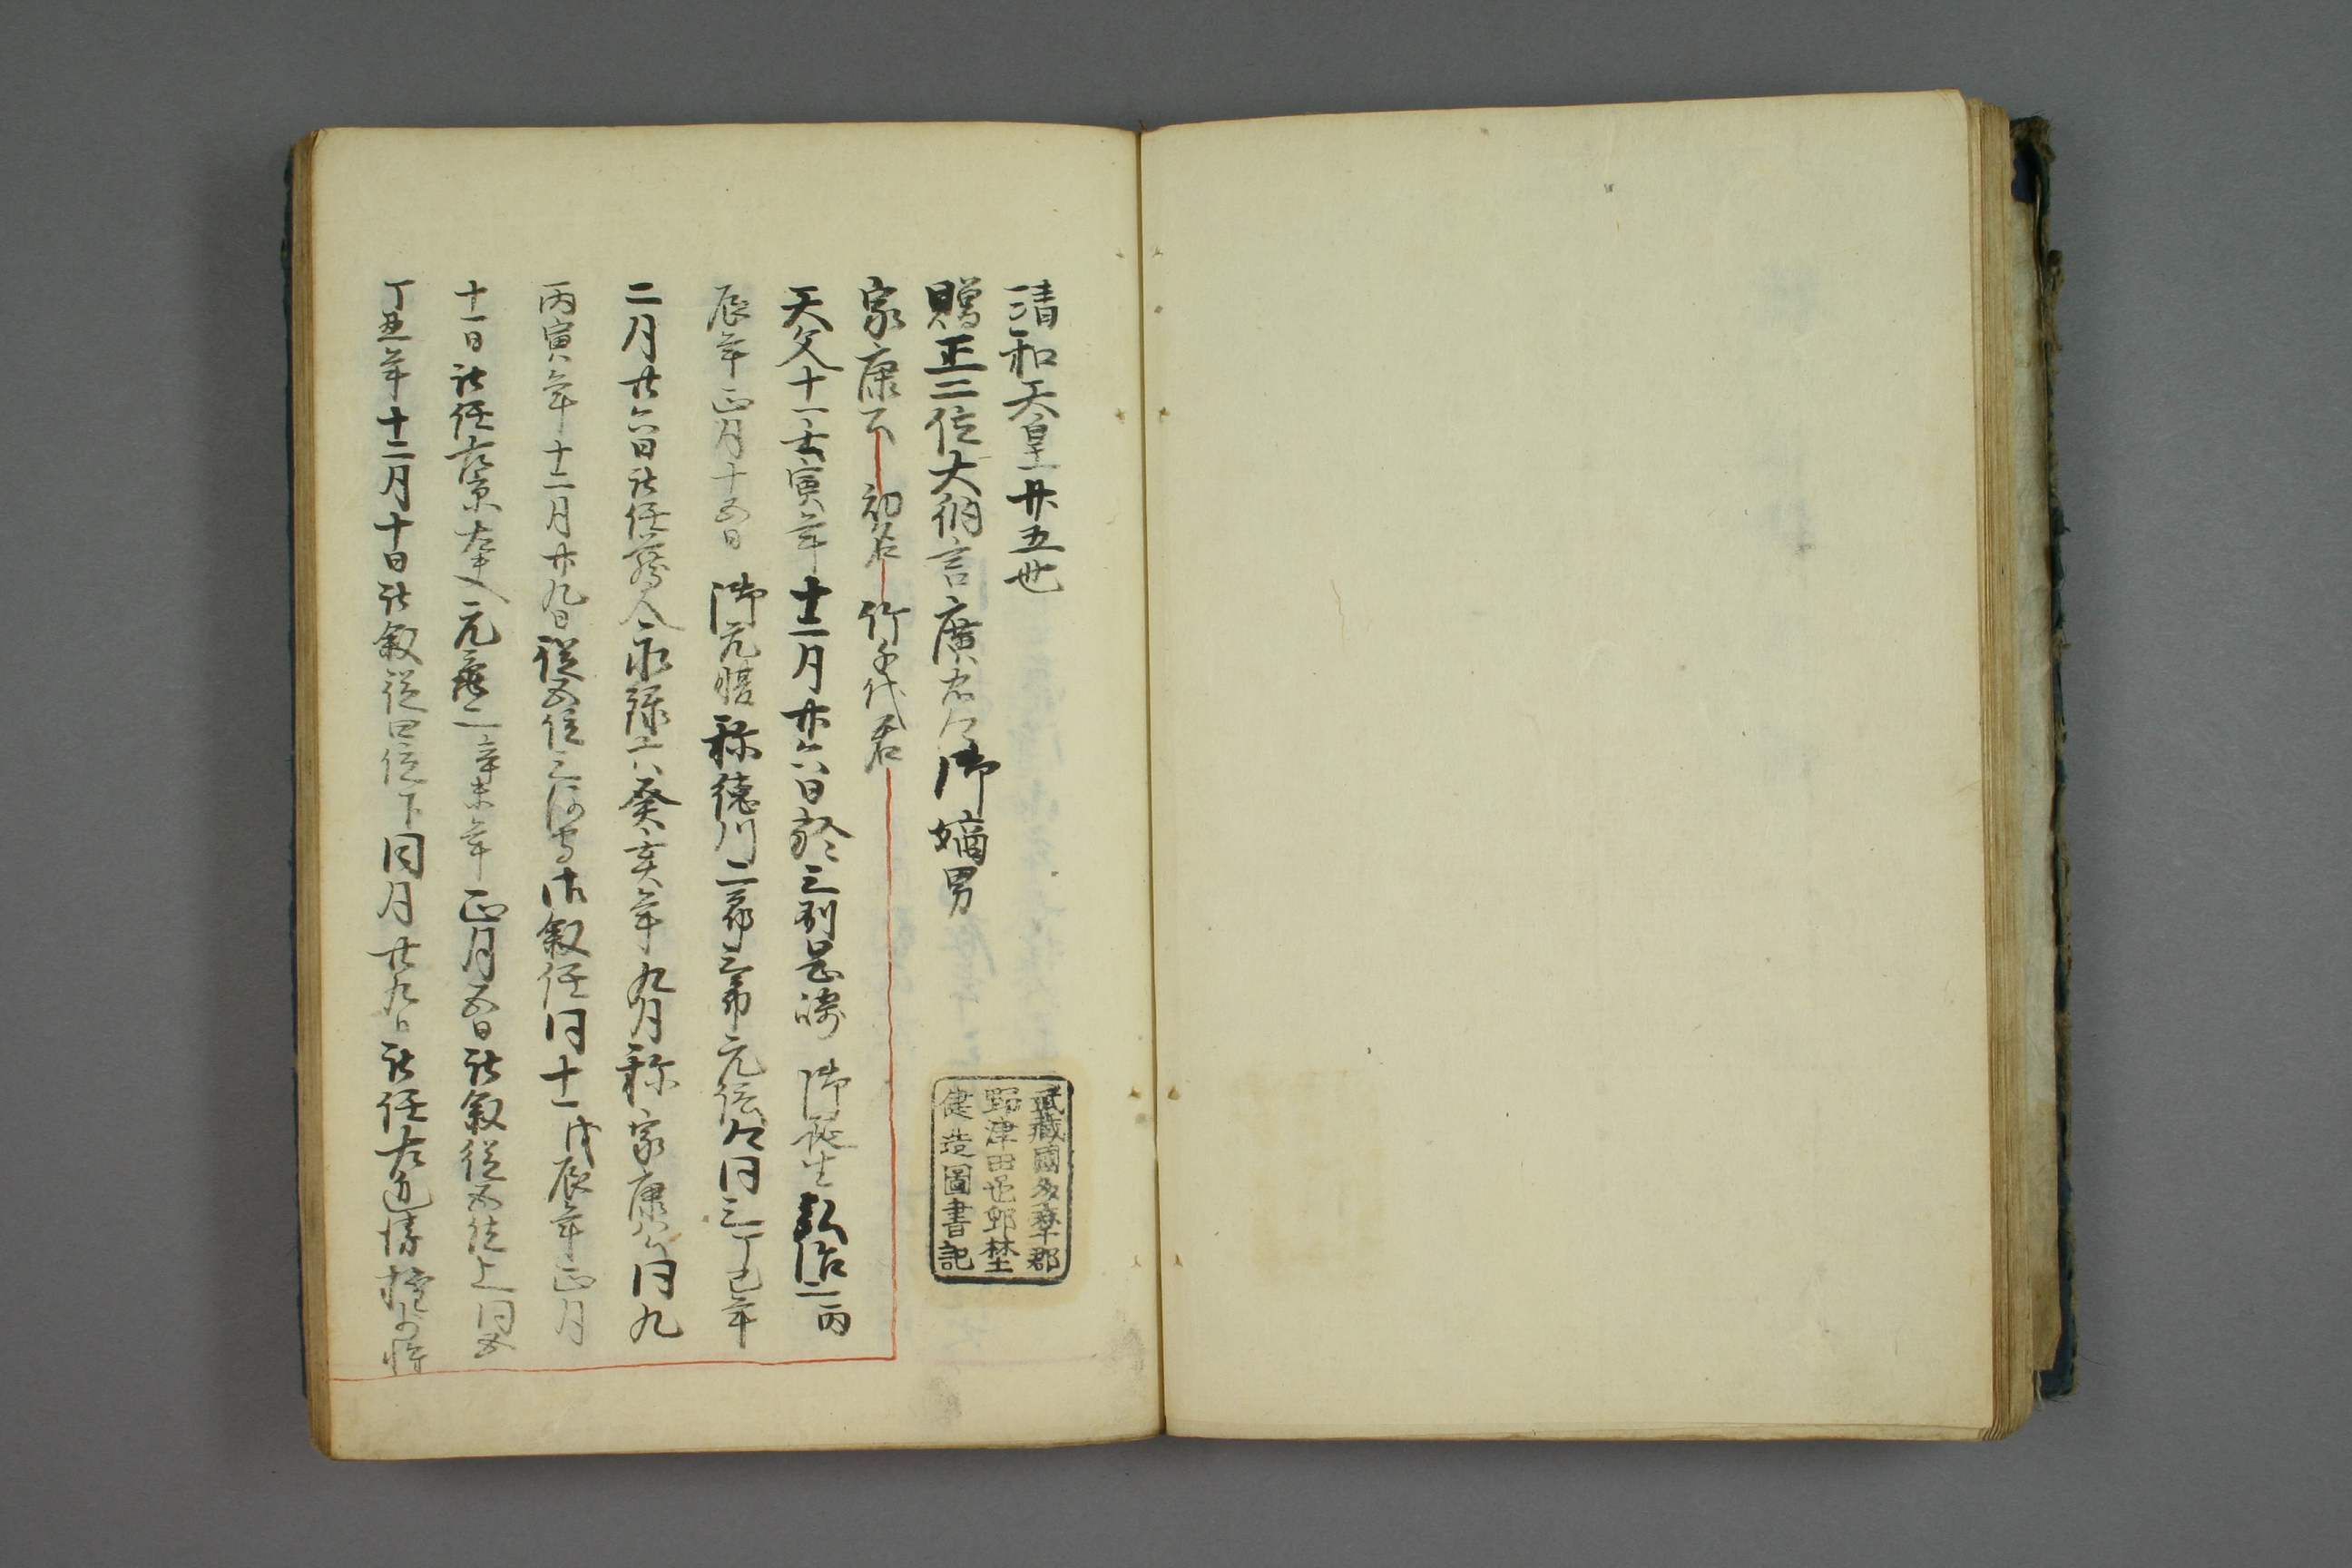 清和天皇廿五世
贈正二位大納言廣忠公御嫡男
家康公 初名 竹千代君
天文十一壬寅年十二月廿六日於三刕岡崎 御誕生弘治二丙
辰年正月十五日 御元服称徳川二郎三郎元信公同三丁巳年
二月廿六日被任蔵人永禄六癸亥年九月称家康公同九
丙寅年十二月廿九日従五位三河守御叙任同十一戊辰年正月
十一日被任左京大夫元亀二辛未年正月五日被叙従五位上同五
丁丑年十二月十日被叙従四位下同月廿九日被任右近衛権少将
武藏國多摩郡
野津田邑鄙埜
健造圖書記